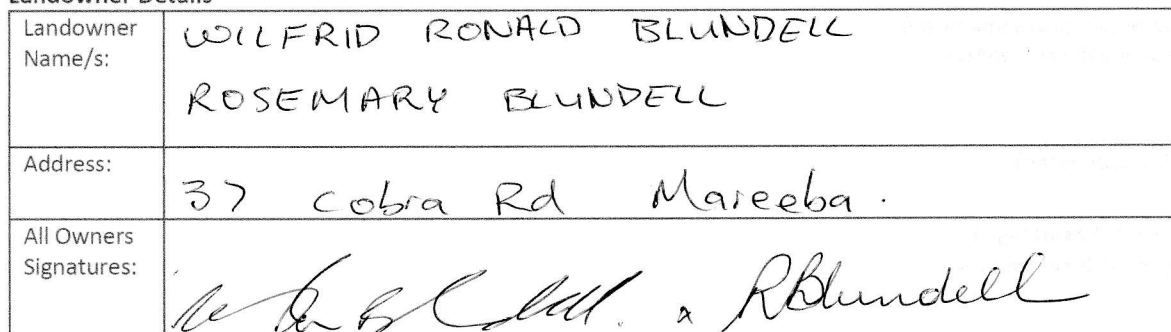 Landowner Details
Landowner
Name/s:
WILFRID RONALD BLUNDELL
ROSEMARY BLUNDELL
Address:
37 Cobra Rd Mareeba.
All Owners
Signatures:
RBlundell